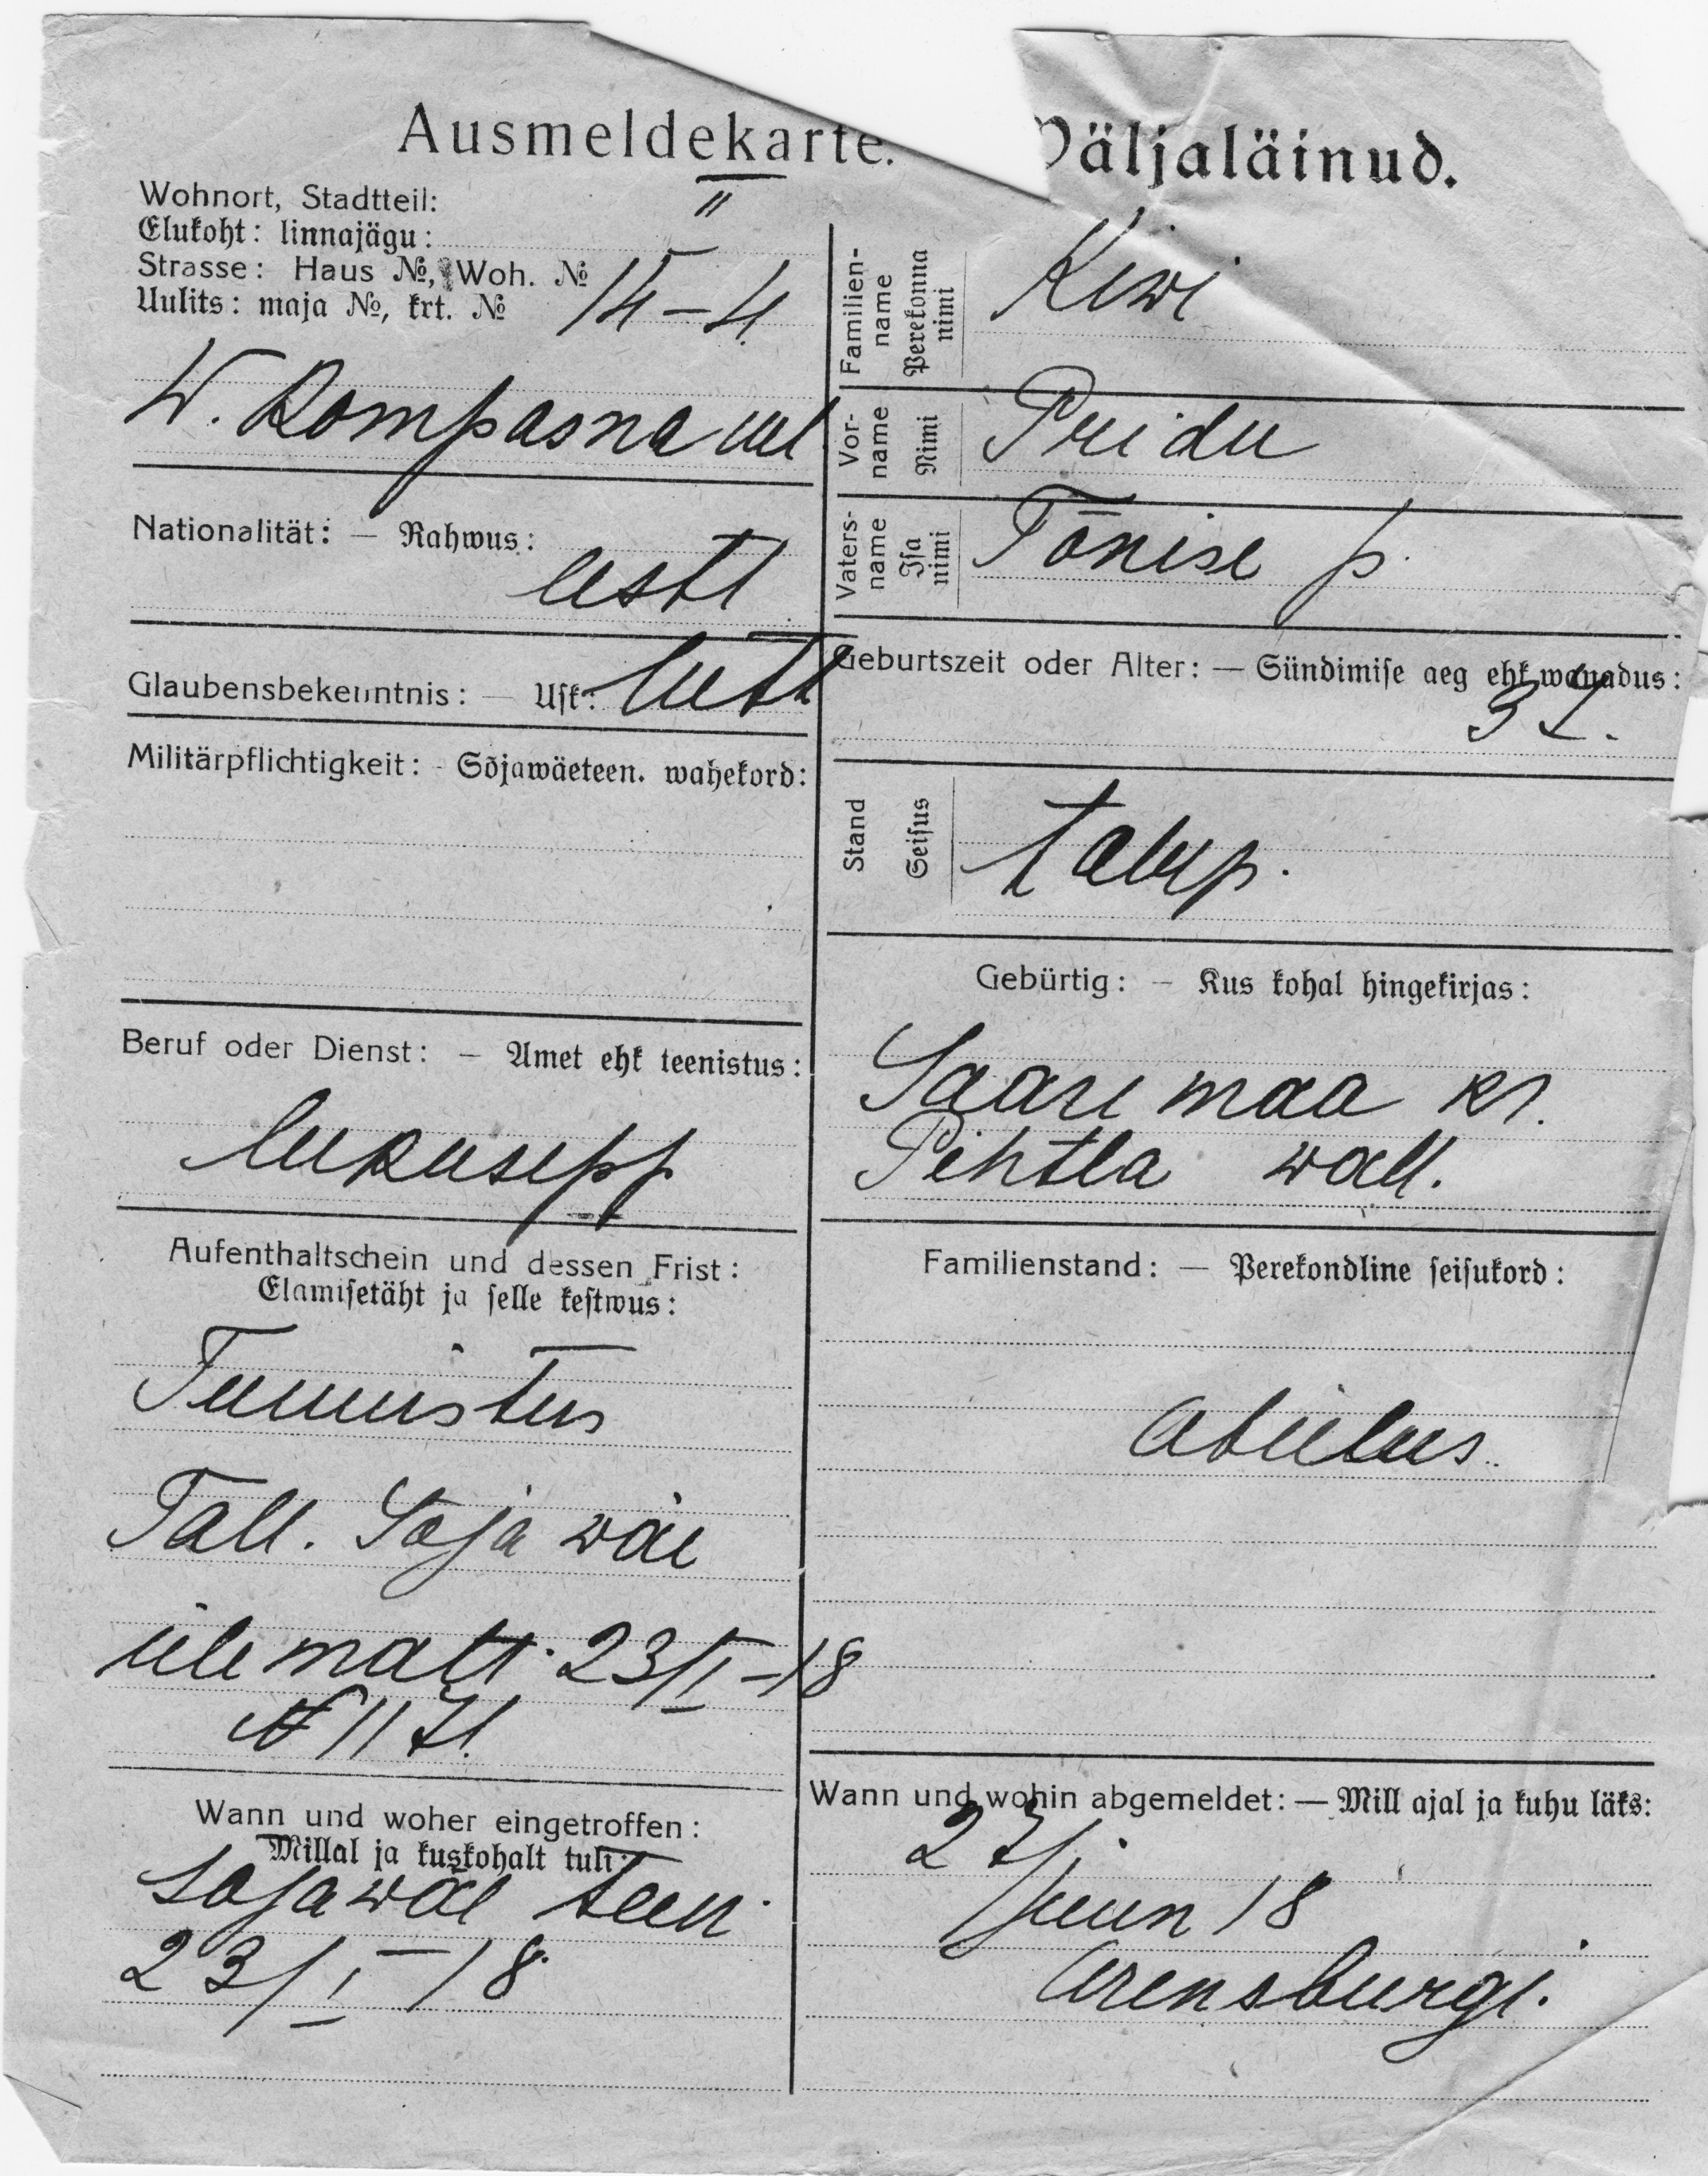 Ausmeldekarte.
Väljaläinud.
Wohnort, Stadtteil: II
Elukoht: linnajägu:
Strasse: Haus №, Woh. №
Uulits: maja №, krt. № 14-4
W. Kompasna uul
Nationalität: — Rahwus:
eesti
Glaubensbekenntnis: — Usk: luth
Militärpflichtigkeit: - Sõjawäeteen. wahekord:
Beruf oder Dienst: — Amet ehk teenistus:
lukusepp
Aufenthaltschein und dessen Frist:
Elamisetäht ja selle kestwus:
Tunnistus
Tall. Sõja wäe
ülematt. 23/I-18
№
Wann und woher eingetroffen:
Millal ja kuskohalt tuli:
sõjawäe teen.
23/I-18
Familien-name Perekonna nimi Kiwi
Vor-name Nimi Priidu
Vaters-name Isa nimi Tõnise p.
Geburtszeit oder Alter: — Sündimise aeg ehk wanadus:
Stand Seisus talup.
Gebürtig: — Kus kohal hingekirjas:
Saaremaa kr.
Pihtla wall.
Familienstand: — Perekondline seisukord:
abielus.
Wann und wohin abgemeldet: — Mill ajal ja kuhu läks:
27/
juun 18
Arensburgi.